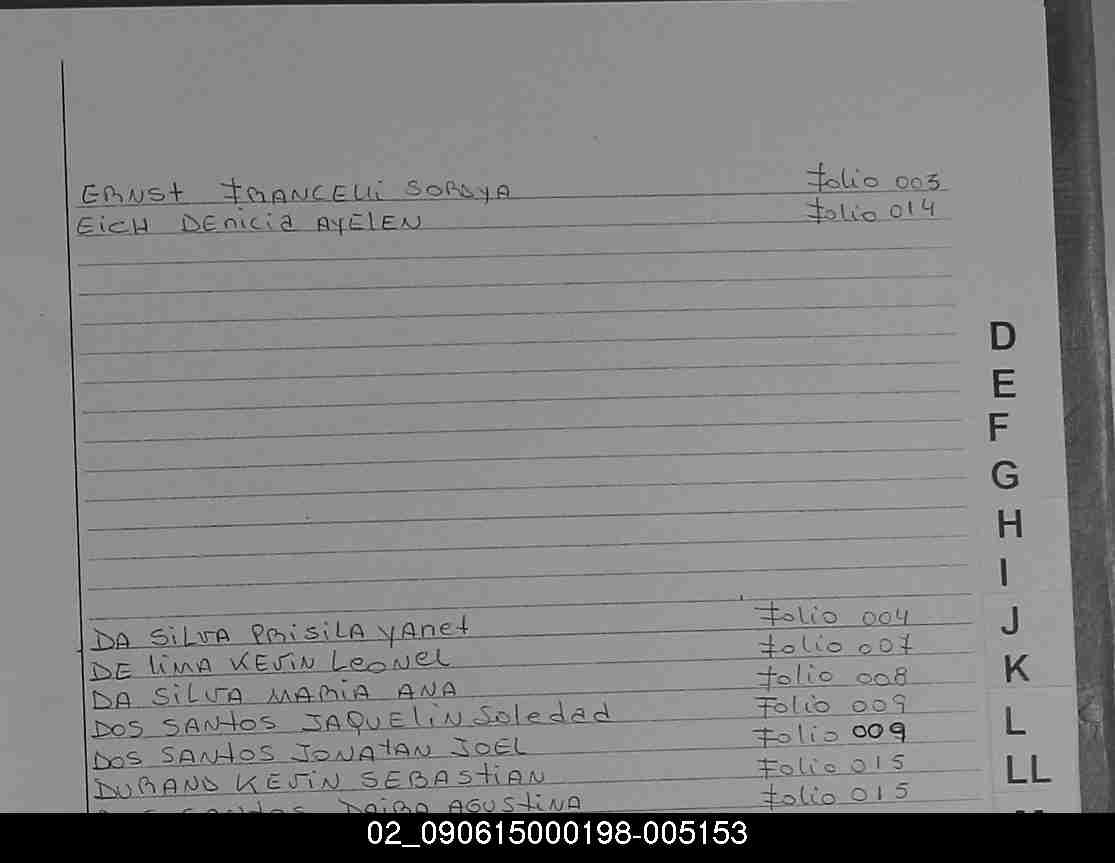 ERNST FRANCELLI SORAYA folio 003
EicH DEnicia AYELEN folio 014
D
E
F
G
H
I
J
K
L
LL
DA SiLVA PRiSiLA YAnet folio 004
DE liMA KEViN Leonel folio 007
DA SiLVA MARiA ANA folio 008
DOS SANtOS JAQUELiN Soledad Folio 009
DOS SANtOS JONATAN JOEL folio 009
DURAND KEViN SEBAStiAN Folio 015
AGUStiNA folio 015
02_090615000198-005153